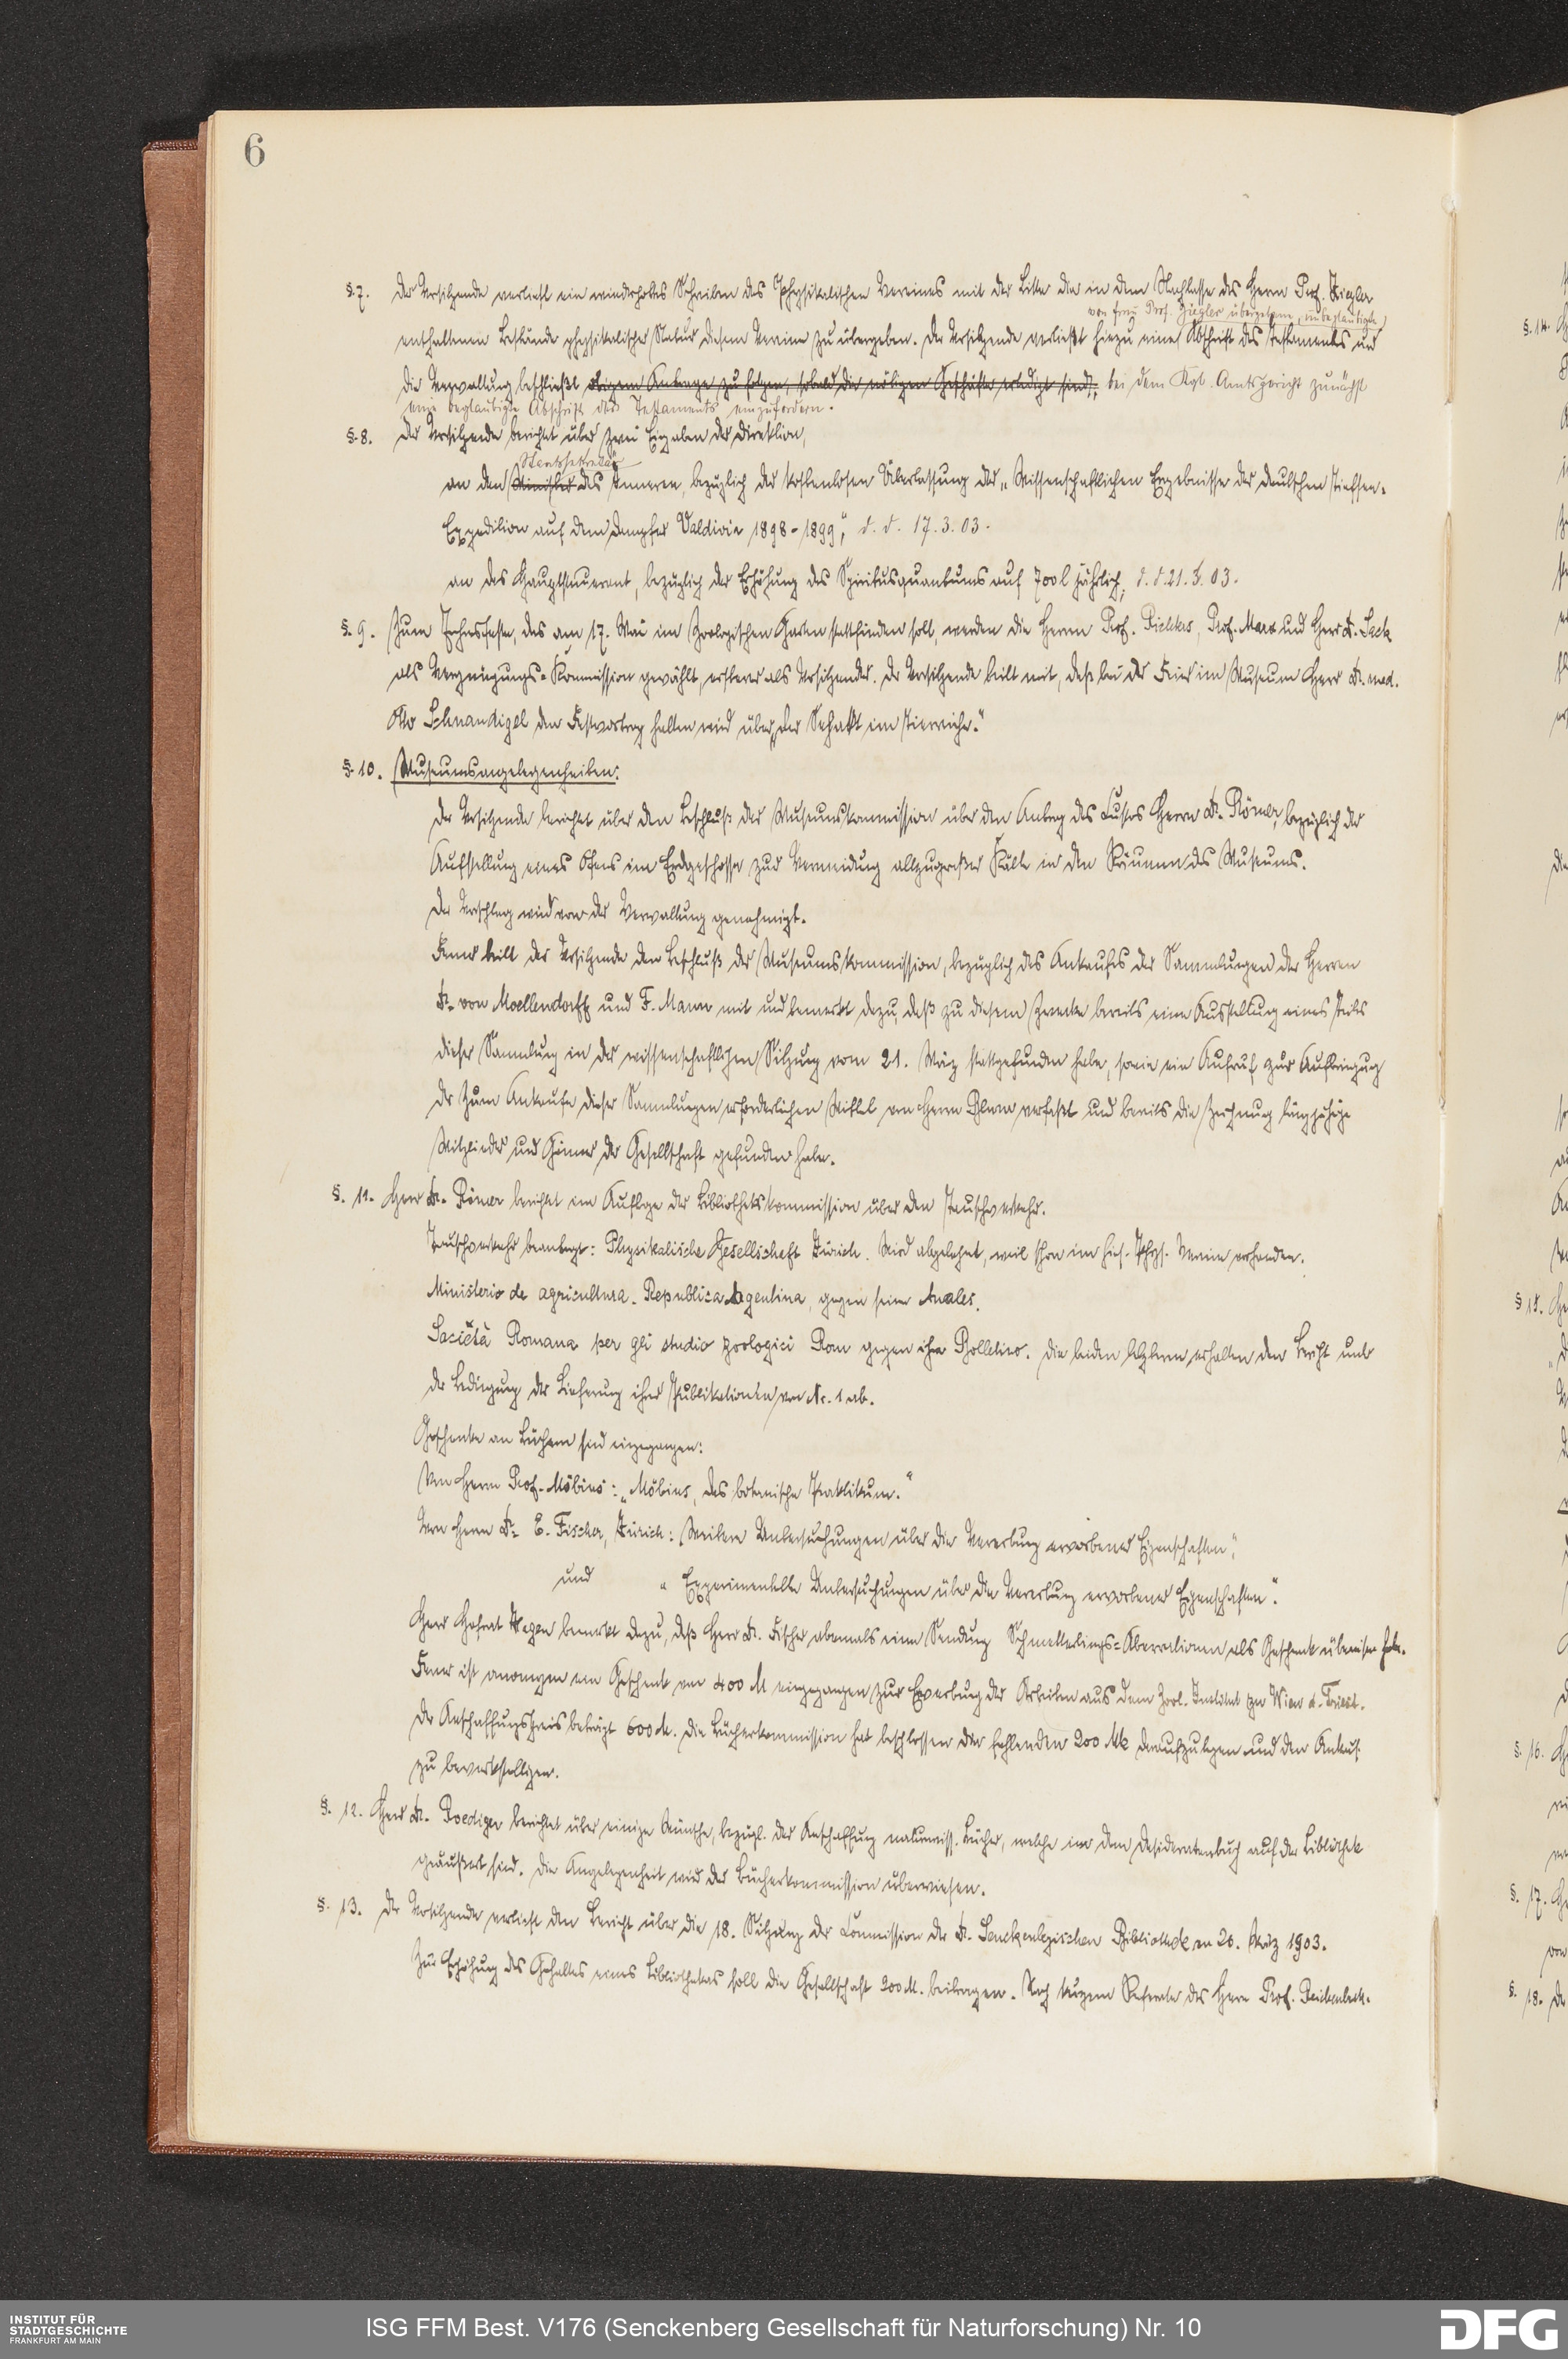 6
§.7. Der Vorsitzende verliest ein wiederholtes Schreiben des Physikalischen Vereines mit der Bitte die in dem Nachlasse des Herrn Prof. Ziegler
von Frau Prof. Ziegler übergebene, unbeglaubigte
enthaltenen Bestände physikalischer Natur diesem Vereine zu übergeben. Der Vorsitzende verliest hiezu eine Abschrift des Testaments und
die Verwaltung beschließt obigem Antrage zu folgen, sobald die nötigen Geschäfte erledigt sind, bei dem Kgl. Amtsgericht zunächst
eine beglaubigte Abschrift des Testaments einzufordern.
§.8. Der Vorsitzende berichtet über zwei Eingaben der Direktion,
Staatssekretär
an den Minister des Inneren, bezüglich der kostenlosen Überlassung der „Wissenschaftlichen Ergebnisse der deutschen Tiefsee-
Expedition auf dem Dampfer Valdivia 1898-1899“, d. d. 17.3.03.
an das Hauptsteueramt, bezüglich der Erhöhung des Spiritusquantums auf 700 l jährlich, d. d. 21.3.03.
§.9. Zum Jahresfeste, das am 17. Mai im Zoologischen Garten stattfinden soll, werden die Herren Prof. Richters, Prof. Marx und Herr Dr. Sack
als Vergnügungs-Kommission gewählt, ersterer als Vorsitzender. Der Vorsitzende teilt mit, daß bei der Feier im Museum Herr Dr. med.
Otto Schnaudigel den Festvortrag halten wird über „der Sehakt im Tierreiche.“
§.10. Museumsangelegenheiten:
Der Vorsitzende berichtet über den Beschluß der Museumskommission über den Antrag des Custos Herrn Dr. Römer, bezüglich der
Aufstellung eines Ofens im Erdgeschosse zur Vermeidung allzugroßer Kälte in den Räumen des Museums.
Der Vorschlag wird von der Verwaltung genehmigt.
Ferner teilt der Vorsitzende den Beschluß der Museumskommission, bezüglich des Ankaufes der Sammlungen der Herren
Dr. von Moellendorff und F. Mann mit und bemerkt dazu, daß zu diesem Zwecke bereits eine Ausstellung eines Teils
dieser Sammlung in der wissenschaftlichen Sitzung vom 21. März stattgefunden habe, sowie ein Aufruf zur Aufbringung
der zum Ankaufe dieser Sammlungen erforderlichen Mittel von Herrn Blum verfaßt und bereits die Zeichnung
Mitglieder und Gönner der Gesellschaft gefunden habe.
§. 11. Herr Dr. Römer berichtet im Auftrage der Bibliothekskommission über den Tauschverkehr.
Tauschverkehr beantragt: Physikalische Gesellschaft Zürich. Wird abgelehnt, weil schon im hies. Phys. Verein vorhanden.
Ministerio de agricultura. Republica Argentina, gegen seine Anales.
Società Romana per gli studio zoologici Rom gegen ihre Bolletino. Die beiden letzteren erhalten den Bericht unter
der Bedingung der Lieferung ihrer Publikationen von Nr. 1 ab.
Geschenke an Büchern sind eingegangen:
Von Herrn Prof. Möbius: „Möbius, das botanische Praktikum.“
Von Herrn Dr. E. Fischer, Zürich: Weitere Untersuchungen über die Vererbung erworbener Eigenschaften“,
und „Experimentelle Untersuchungen über die Vererbung erworbener Eigenschaften“.
Herr Hofrat Hagen bemerkt dazu, daß Herr Dr. Fischer abermals eine Sendung Schmetterlings-Aberrationen als Geschenk überwiesen habe.
Ferner ist anonym ein Geschenk von 400 M eingegangen zur Erwerbung der Arbeiten aus dem Zool. Institut zu Wien u. Triest.
Der Anschaffungspreis beträgt 600 M. Die Bücherkommission hat beschlossen die fehlenden 200 Mk daraufzulegen und den Ankauf
zu bewerkstelligen.
§. 12. Herr Dr. Roediger berichtet über einige Wünsche, bezügl. der Anschaffung naturwiss. Bücher, welche in dem Desideratenbuch auf der Bibliothek
geäußert sind. Die Angelegenheit wird der Bücherkommission überwiesen.
§. 13. Der Vorsitzende verliest den Bericht über die 18. Sitzung der Commission der Dr. Senckenbergischen Bibliothek am 20. März 1903.
Zur Erhöhung des Gehaltes eines Bibliothekars soll die Gesellschaft 200 M. beitragen. Nach kurzem Referate des Herrn Prof. Reichenbach.
§.14.
§ 15.
§. 16.
§. 17.
§. 18.
INSTITUT FÜR
STADTGESCHICHTE
FRANKFURT AM MAIN
ISG FFM Best. V176 (Senckenberg Gesellschaft für Naturforschung) Nr. 10
DFG